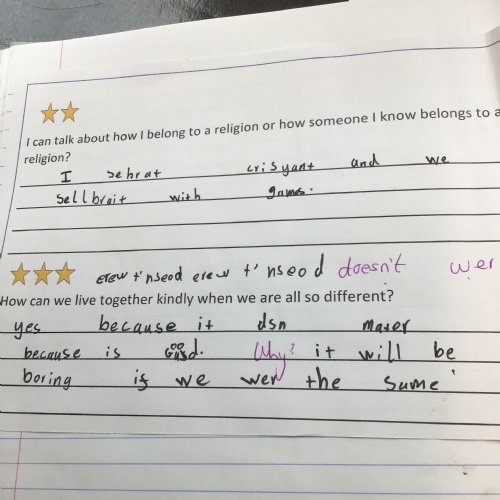 I can talk about how I belong to a religion or how someone I know belongs to a
religion?
I sebrat crisyant and we
sellbrait with games.
erew t'nseod erew t'nseod doesn't wer
How can we live together kindly when we are all so different?
yes because it dsn mater
because is good. Why? it will be
boring if we wer the sume